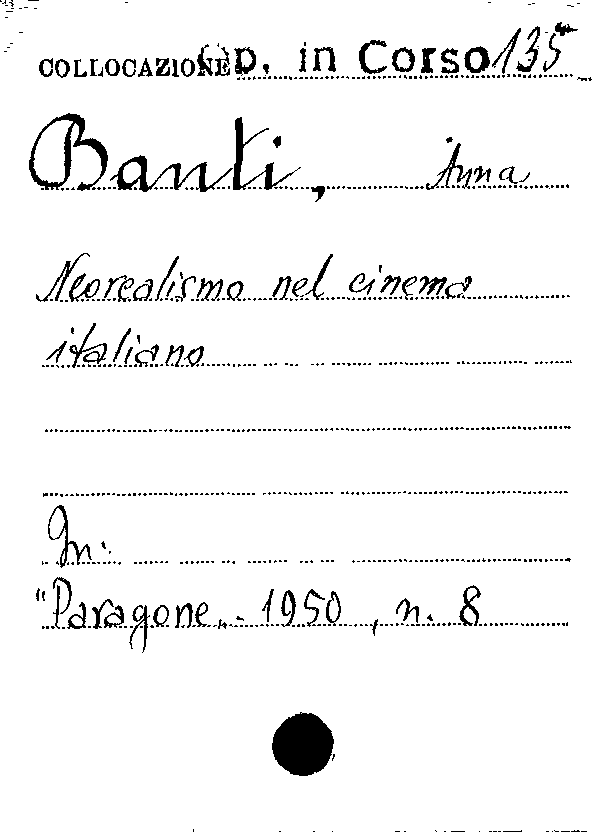 COLLOCAZIONE Op. in Corso 135
Banti, Anna
Neorealismo nel cinema
italiano
In:
"Paragone„. 1950, n. 8